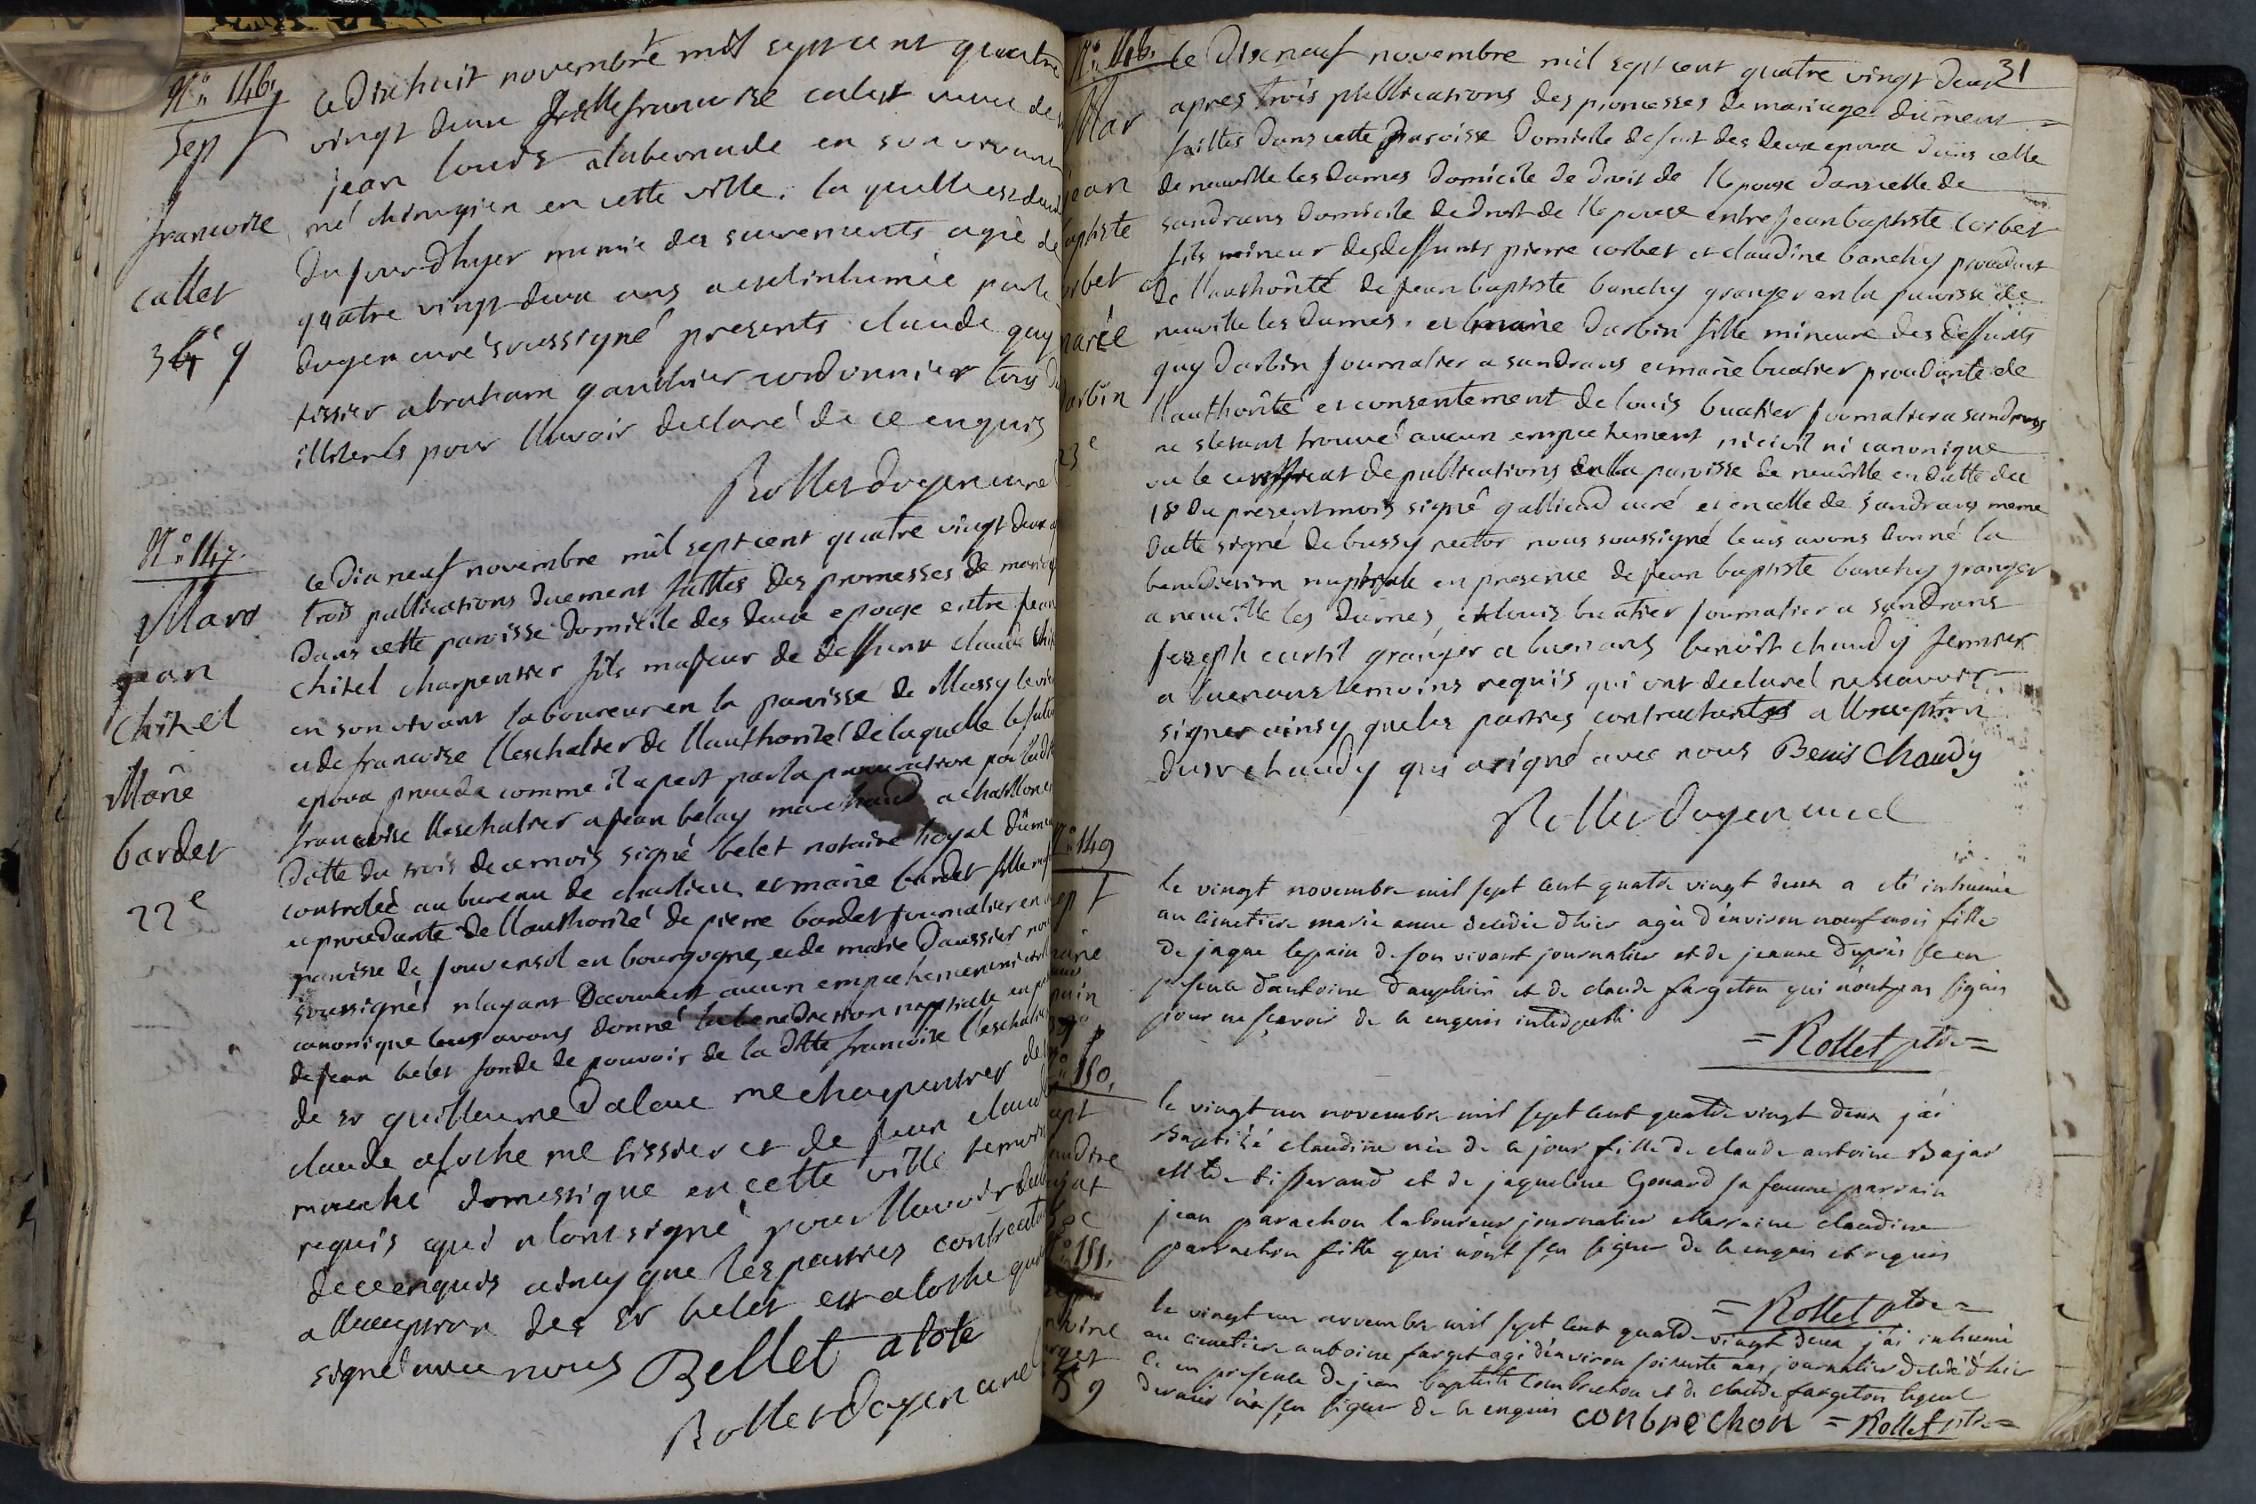 N.° 146.
Sep
francoise
callet
ce dixhuit novembre mil sept cent quatre
vingt deux francoise callet veuve de
jean louis alabernade en son vivant
mé chirurgien en cette ville. la quelle est
du jour d'hyer munie des sacrements agée de
quatre vingt deux ans a esté inhumée par le
doyen curé soussigné presents claude guy
tissier abraham gauthier cordonnier tous
illiterés pour llavoir declaré de ce enquis
Rollet doyen curé
N.° 147.
Mare
jean
Chitel
Marie
bardet
22e
ce dix neuf novembre mil sept cent quatre vingt deux
trois publications duement faittes des promesses de
dans cette paroisse domicile des deux epoux entre jean
Chitel charpentier fils majeur de deffunt claude
en son vivant laboureur en la paroisse de Mussy
et de francoise lleschalier de llauthorité de laquelle
epoux procede comme il apert par la procuration
francoise lleschalier a jean belay marchand
datte du trois de ce mois signé belet notaire Royal
controlée au bureau de charlieu et marie bardet fille
et procedante de llauthorité de pierre bardet journalier en
paroisse de en bourgogne, et de marie daussier
soussigné nlayant decouvert aucun empechement
canonique leur avons donné la benediction nuptiale en
de jean belet fondé de pouvoir de la ditte francoise lleschalier
de sr guillaume dalaue me charpentier
claude alothe me tissier et de jean
domestique en cette ville
requis qui nlont signé pour llavoir
de ce enquis ainsy que les parties
a llexception des sr belet et alothe
signé avec nous Bellet alote
Rollet doyen curé
31
Mar
jean
baptiste
23e
le dixneuf novembre mil sept cent quatre vingt deux
apres trois publications des promesses de mariage dûment
faittes dans cette paroisse domicile de fait des deux epoux dans celle
de neuville les dames domicile de droit de llepoux dans celle de
sandrans domicile de droit de llepouse entre jean baptiste corbet
fils mineur des deffunts pierre corbet et claudine banchy procedant
de llauthorité de jean baptiste banchy granger en la paroisse de
neuville les dames. et marie darbin fille mineure des deffunts
guy darbin journalier a sandrans et marie buatier procedante de
llauthorité et consentement de louis buatier journalier a sandrans
ne slestant trouvé aucun empechement ni civil ni canonique
vu le certificat de publications de la paroisse de neuville en datte du
18 du present mois signé galliand curé et en celle de sandrans meme
datte signé debussy rector nous soussigné leurs avons donné la
benediction nuptiale en presence de jean baptiste banchy granger
a neuville les dames, et louis buatier journalier a sandrans
joseph curtil granger a buenans benoit chaudy fermier
a buenans temoins requis qui ont declaré ne scavoir
signer ainsy que les parties contractantes a llexception
du sr chaudy qui a signé avec nous Benis Chaudy
Rollet doyen curé
N.° 149
le vingt novembre mil sept cent quatre vingt deux a eté inhumée
au cimetiere marie anne decedée d'hier agée d'environ neuf mois fille
de jaque lepain de son vivant journalier et de jeanne dupuis ce en
presence d'antoine dauphin et de claude fargeton qui n'ont pas signé
pour ne sçavoir de ce enquis
= Rollet ptre =
150.
le vingt un novembre mil sept cent quatre vingt deux j'ai
Baptisé claudine née de ce jour fille de claude antoine Bajat
Mtre tisserand et de jaqueline Gonard sa femme parrain
jean parachon laboureur journalier Marraine claudine
parrachon fille qui n'ont sçu signer de ce enquis et requis
= Rollet ptre =
151.
le vingt un novembre mil sept cent quatre vingt deux j'ai inhumé
au cimetiere antoine farget agé d'environ soixante ans journalier decedé d'hier
ce en presence de jean baptiste Combrechon et de claude fargeton lequel
dernier n'a sçu signer de ce enquis conbrechon = Rollet ptre =